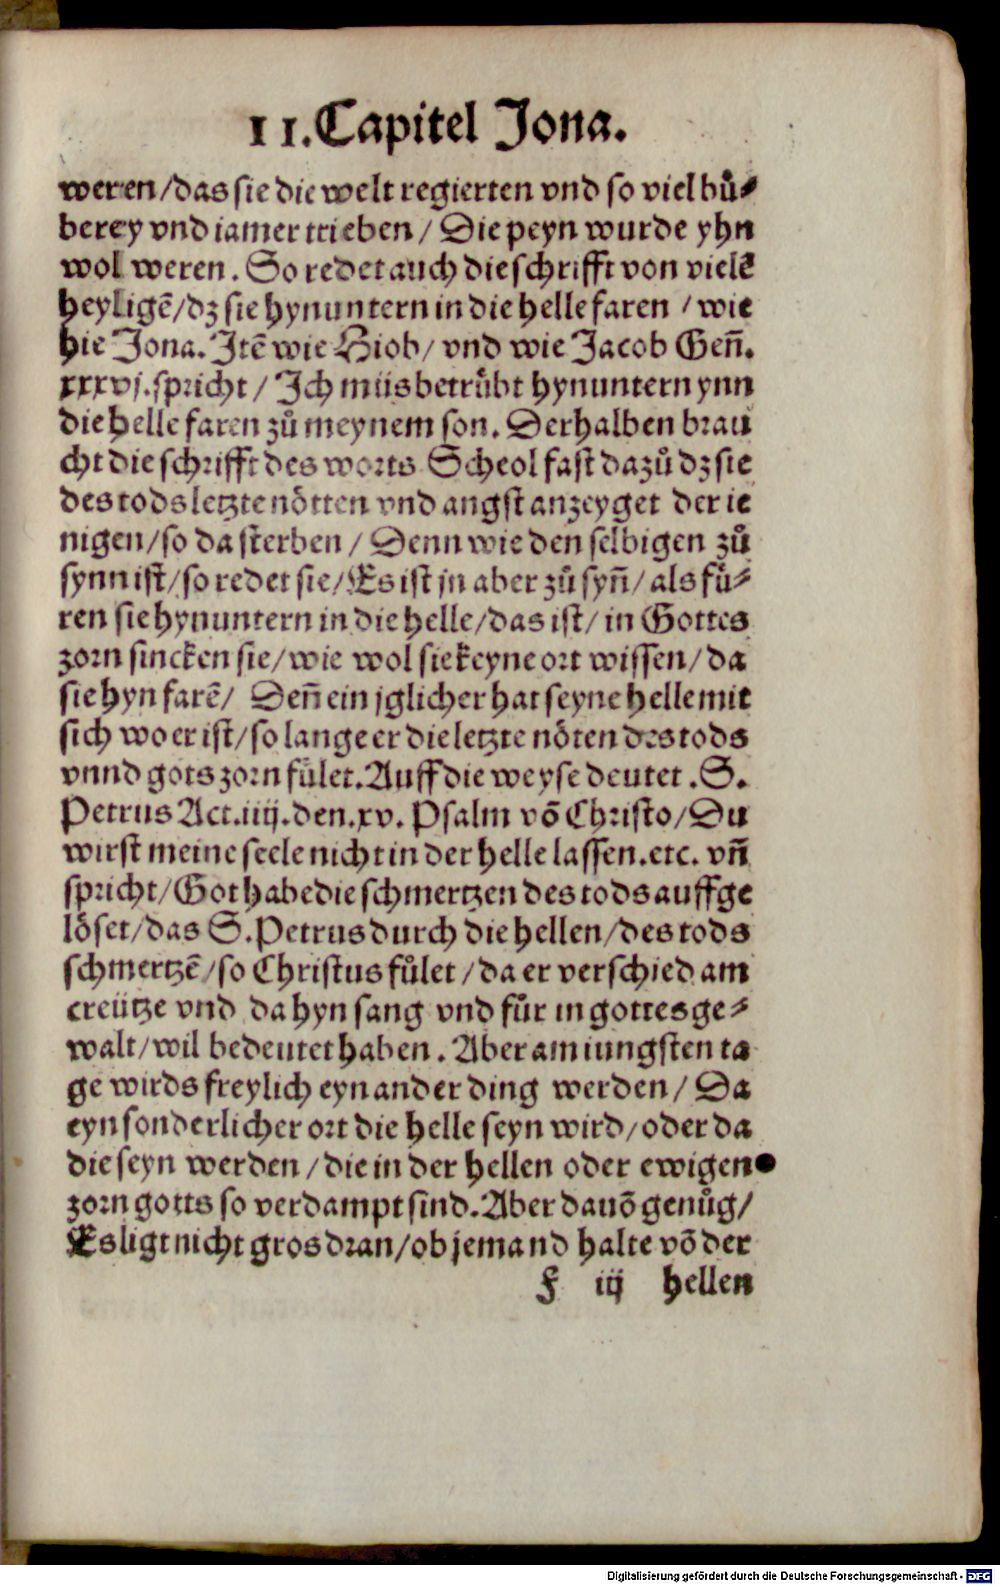 11.Capitel Jona.
weren/das sie die welt regierten vnd so viel bů⸗
berey vnd iamer trieben/ Die peyn wurde yhn
wol weren. So redet auch die schrifft von vielẽ
heyligẽ/dz sie hynuntern in die helle faren /wie
hie Jona. Jtẽ wie Hiob/ vnd wie Jacob Geñ.
xxxvj.spricht/ Jch můs betrůbt hynuntern ynn
die helle faren zů meynem son. Derhalben brau
cht die schrifft des worts Scheol fast dazů dz sie
des tods letzte nötten vnd angst anzeyget der ie
nigen/so da sterben/ Denn wie den selbigen zů
synn ist/so redet sie/Es ist jn aber zů syñ/als fů⸗
ren sie hynuntern in die helle/das ist/in Gottes
zorn sincken sie/wie wol sie keyne ort wissen/da
sie hyn farẽ/ Deñ ein jglicher hat seyne helle mit
sich wo er ist/so lange er die letzte nöten des tods
vnnd gots zorn fůlet. Auff die weyse deutet .S.
Petrus Act.iiij.den.xv. Psalm võ Christo/Du
wirst meine seele nicht in der helle lassen.etc. vñ
spricht/Got habe die schmertzen des tods auffge
löset/das S.Petrus durch die hellen/des tods
schmertzẽ/so Christus fůlet/da er verschied am
creütze vnd da hyn sang vnd fůr in gottes ge⸗
walt/wil bedeutet haben. Aber am iungsten ta
ge wirds freylich eyn ander ding werden/ Da
eyn sonderlicher ort die helle seyn wird/oder da
die seyn werden/die in der hellen oder ewigen
zorn gotts so verdampt sind. Aber dauõ genůg/
Es ligt nicht gros dran/ob jemand halte võ der
F iij hellen
Digitalisierung gefördert durch die Deutsche Forschungsgemeinschaft - DFG